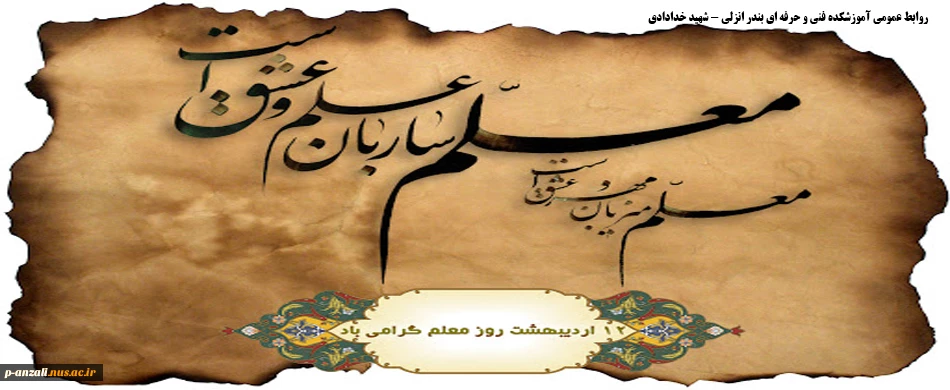 روابط عمومی آموزشکده فنی و حرفه ای بندر انزلی – شهید خدادادی
معلّم ساربان علم و عشق است
معلّم میزبان مهر و عشق است
۱۲ اردیبهشت روز معلم گرامی باد
p-anzali.nus.ac.ir